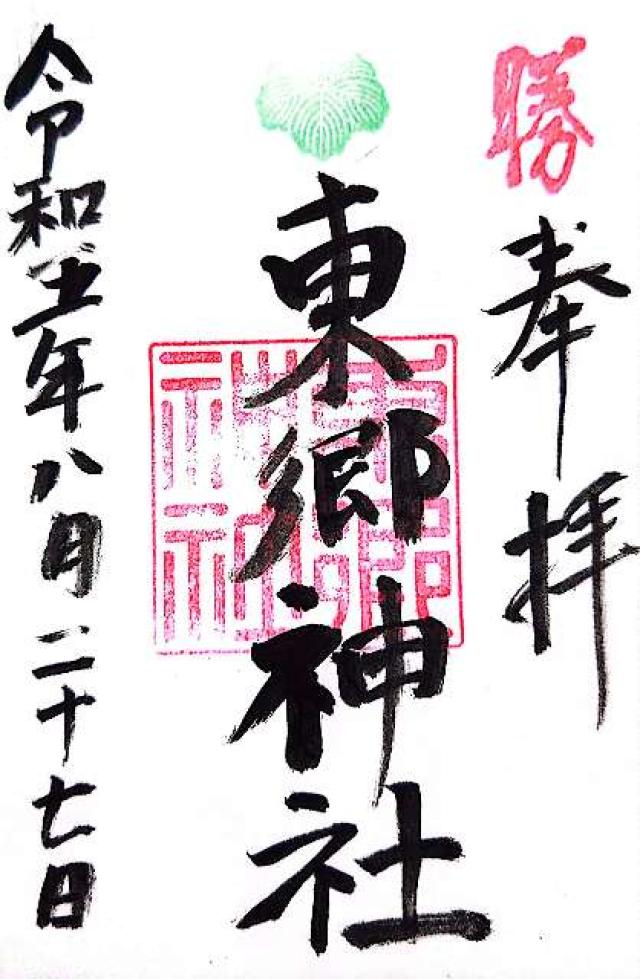 勝
奉拝
東郷神社
東郷神社
令和五年八月二十七日